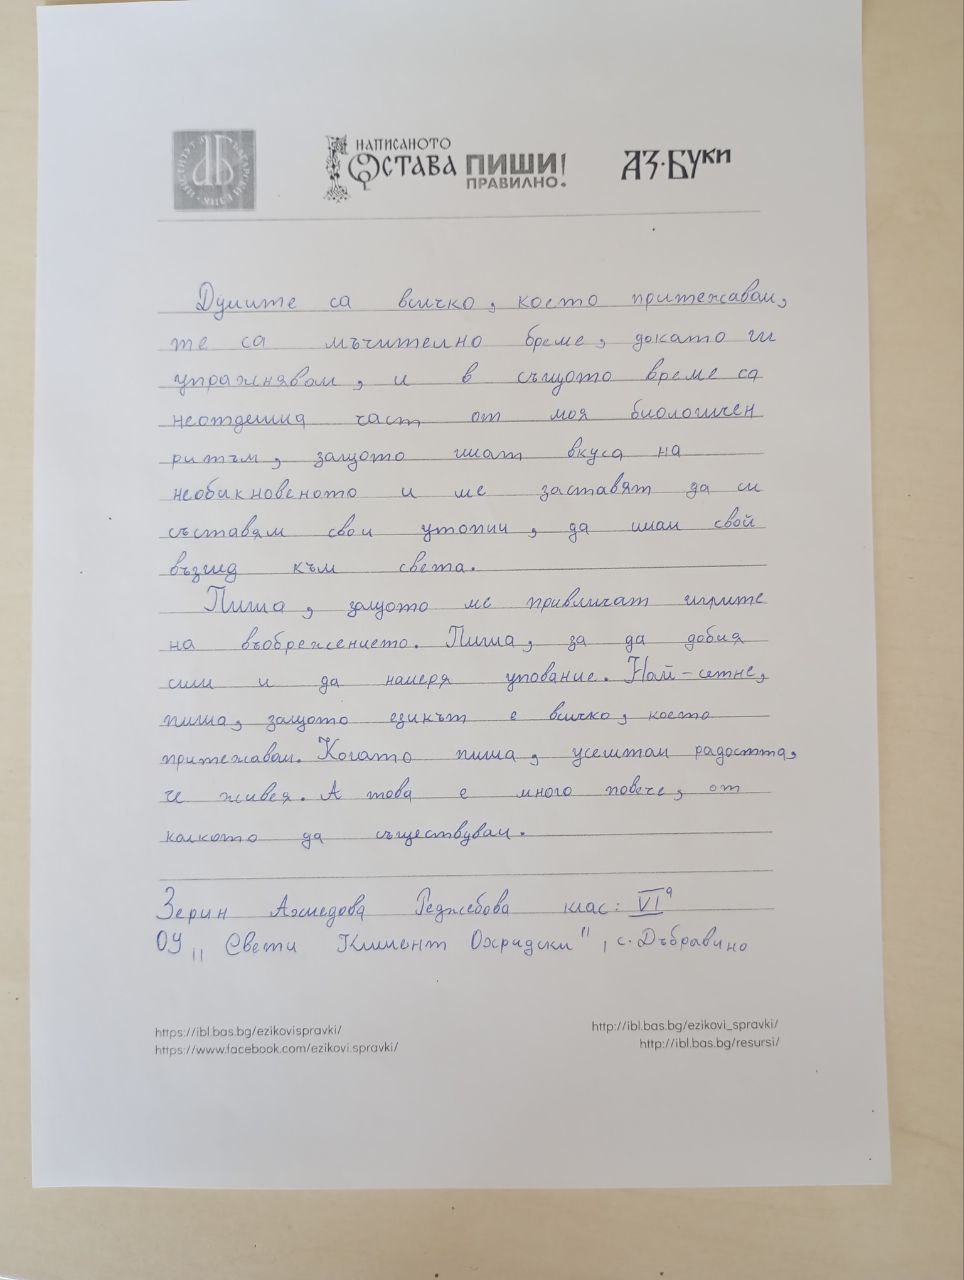 ИНСТИТУТ ЗА БЪЛГАРСКИ ЕЗИК
НАПИСАНОТО
ОСТАВА ПИШИ!
ПРАВИЛНО.
АЗ·БУКИ
Думите са всичко, което притежавам,
те са мъчително бреме, докато ги
упражнявам, и в същото време са
неотделима част от моя биологичен
ритъм, защото имат вкуса на
необикновеното и ме заставят да си
съставям свои утопии, да имам свой
възглед към света.
Пиша, защото ме привличат игрите
на въображението. Пиша, за да добия
сили и да намеря упование. Най-сетне,
пиша, защото езикът е всичко, което
притежавам. Когато пиша, усештам радостта,
че живея. А това е много повече, от
колкото да съществувам.
Зерин Ахмедова Реджебова клас: VIа
ОУ „Свети Климент Охридски", с. Дъбравино
https://ibl.bas.bg/ezikovispravki/
http://ibl.bas.bg/ezikovi_spravki/
https://www.facebook.com/ezikovi.spravki/
http://ibl.bas.bg/resursi/